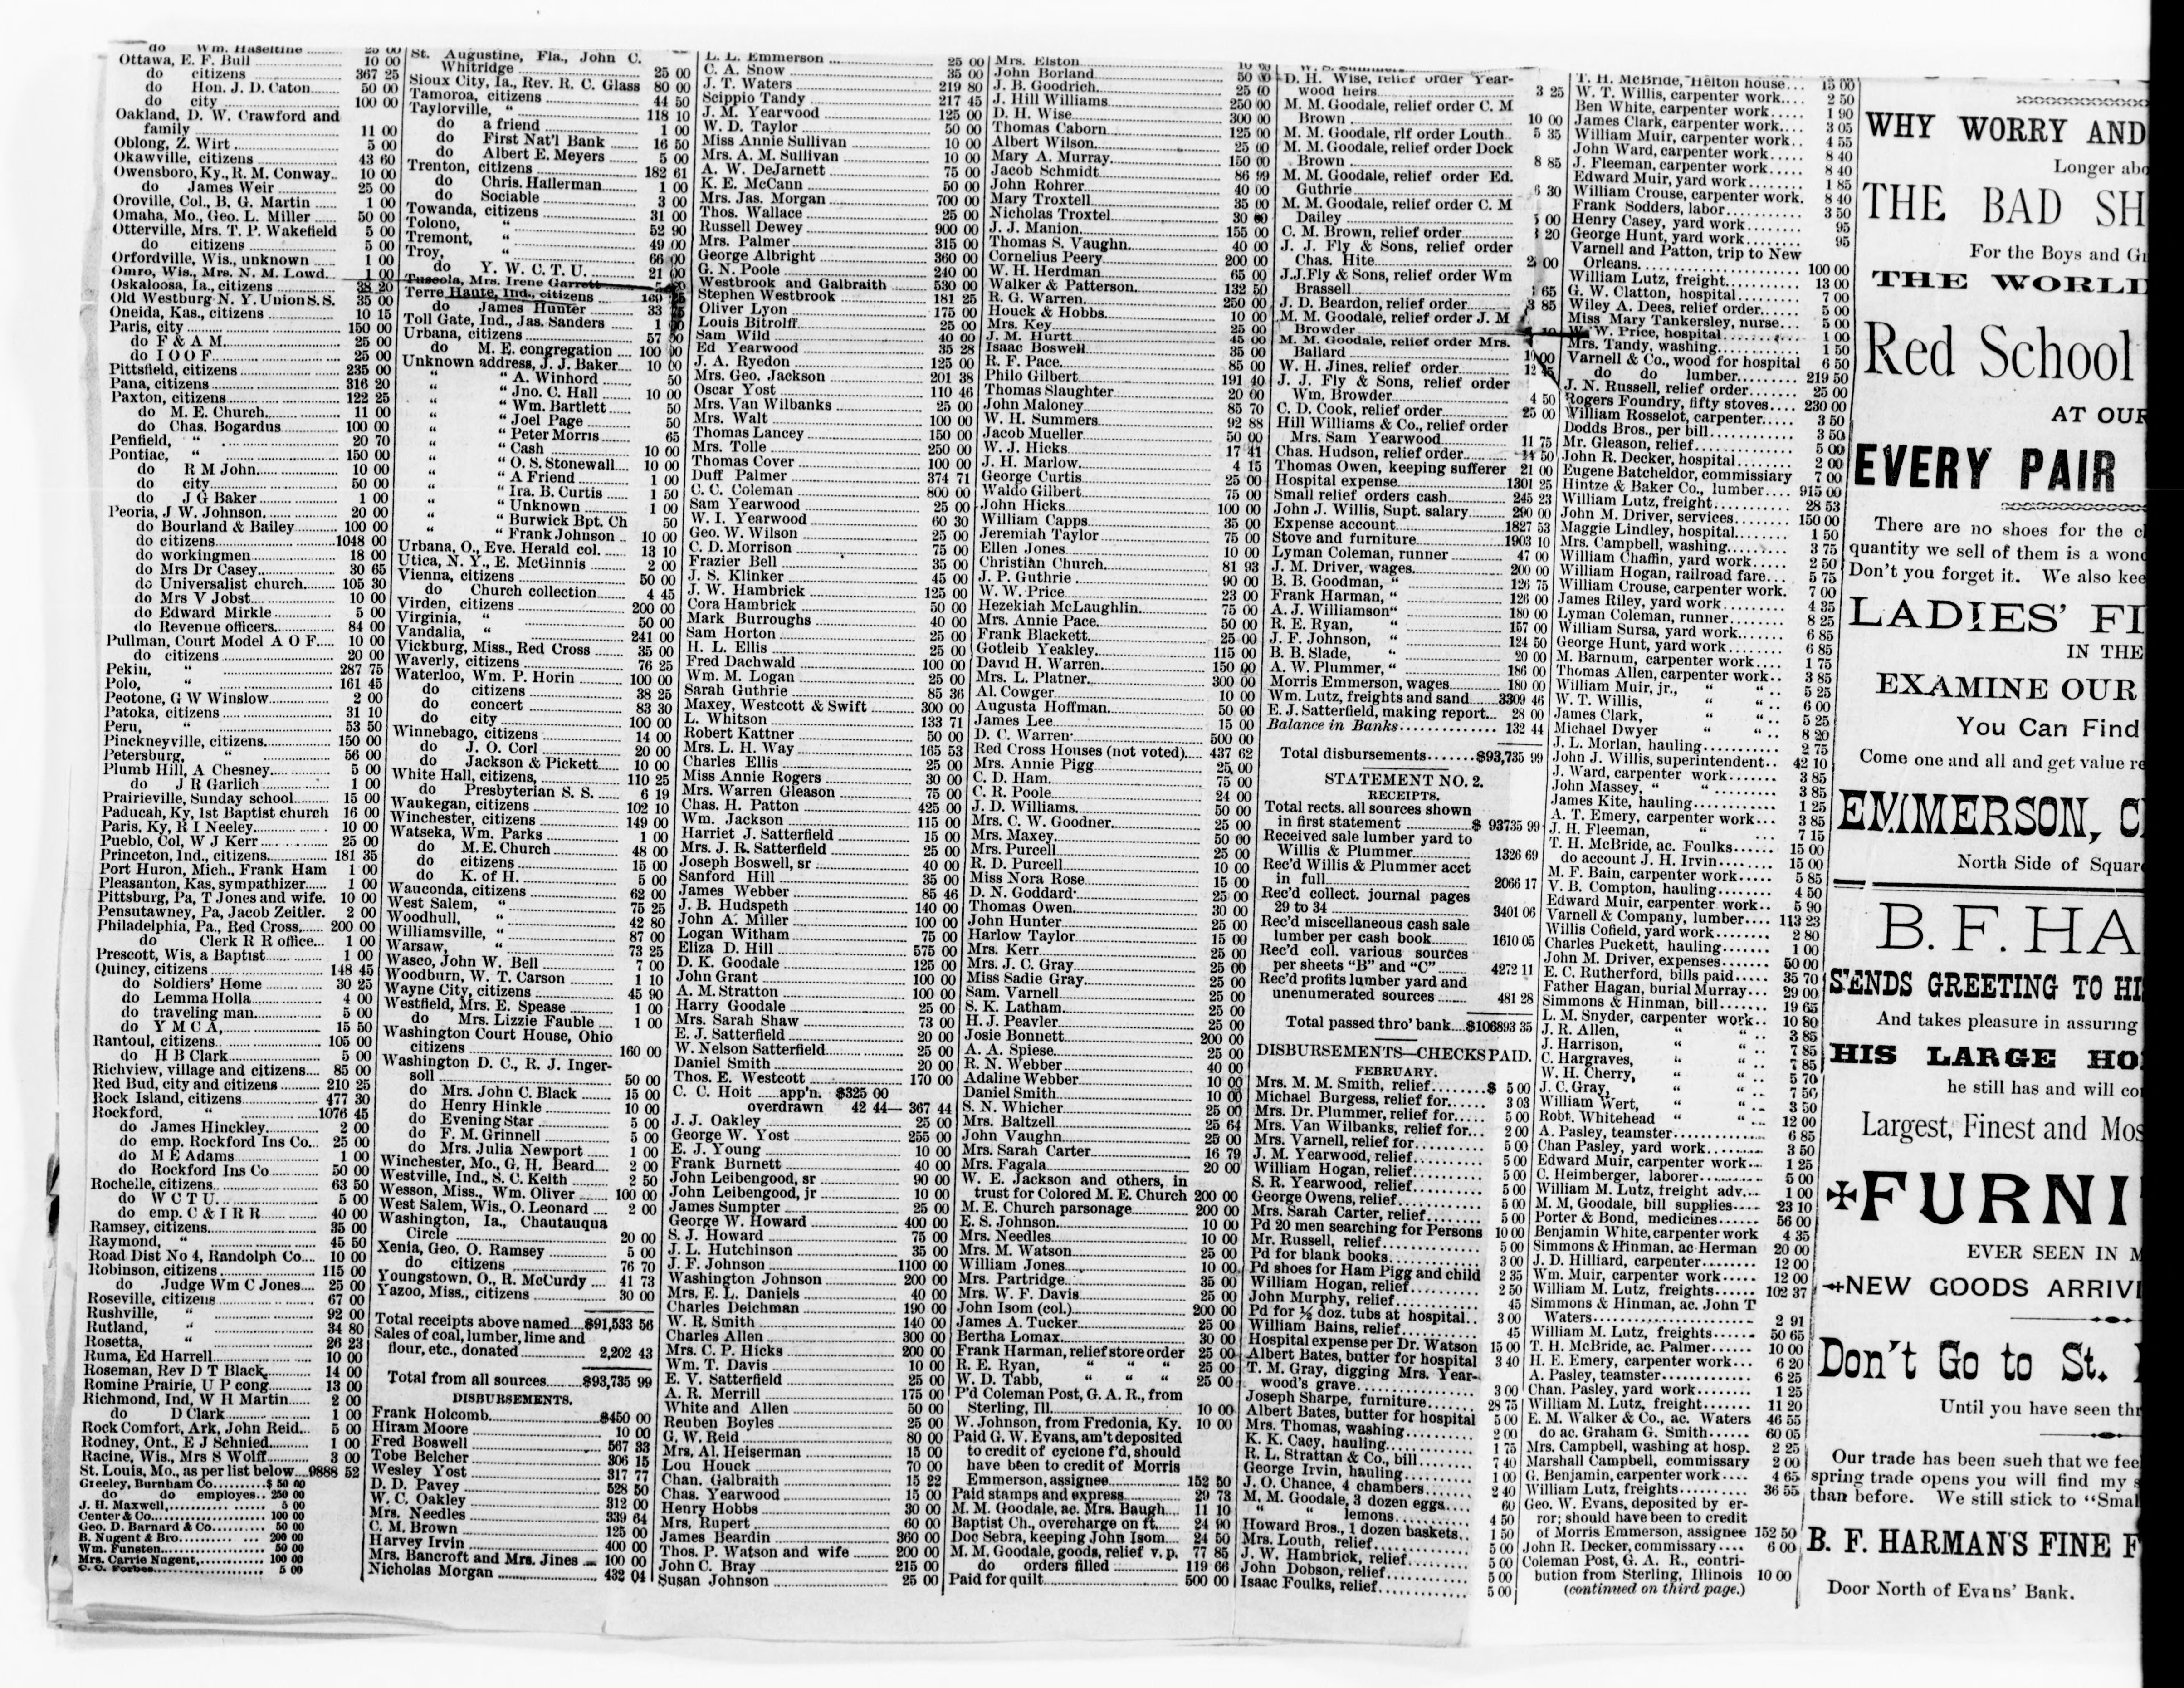 do Wm. Haseltine 25 00
Ottawa, E. F. Bull 10 00
do citizens 367 25
do Hon. J. D. Caton 50 00
do city 100 00
Oakland, D. W. Crawford and
family 11 00
Oblong, Z. Wirt 5 00
Okawville, citizens 43 60
Owensboro, Ky., R. M. Conway 10 00
do James Weir 25 00
Oroville, Col., B. G. Martin 1 00
Omaha, Mo., Geo. L. Miller 50 00
Otterville, Mrs. T. P. Wakefield 5 00
do citizens 5 00
Orfordville, Wis., unknown 1 00
Omro, Wis., Mrs. N. M. Lowd. 1 00
Oskaloosa, Ia., citizens 38 20
Old Westburg N. Y. Union S. S. 35 00
Oneida, Kas., citizens 10 15
Paris, city 150 00
do F & A M 25 00
do I O O F 25 00
Pittsfield, citizens 235 00
Pana, citizens 316 20
Paxton, citizens 122 25
do M. E. Church 11 00
do Chas. Bogardus 100 00
Penfield, “ 20 70
Pontiac, “ 150 00
do R M John 10 00
do city 50 00
do J G Baker 1 00
Peoria, J W. Johnson 20 00
do Bourland & Bailey 100 00
do citizens 1048 00
do workingmen 18 00
do Mrs Dr Casey 30 65
do Universalist church 105 30
do Mrs V Jobst 10 00
do Edward Mirkle 5 00
do Revenue officers 84 00
Pullman, Court Model A O F 10 00
do citizens 20 00
Pekin, “ 287 75
Polo, “ 161 45
Peotone, G W Winslow 2 00
Patoka, citizens 31 10
Peru, “ 53 50
Pinckneyville, citizens 150 00
Petersburg, “ 56 00
Plumb Hill, A Chesney 5 00
do J R Garlich 1 00
Prairieville, Sunday school 15 00
Paducah, Ky, 1st Baptist church 16 00
Paris, Ky, R I Neeley 10 00
Pueblo, Col, W J Kerr 25 00
Princeton, Ind., citizens 181 35
Port Huron, Mich., Frank Ham 1 00
Pleasanton, Kas, sympathizer 1 00
Pittsburg, Pa, T Jones and wife. 10 00
Pensutawney, Pa, Jacob Zeitler. 2 00
Philadelphia, Pa., Red Cross, 200 00
do Clerk R R office 1 00
Prescott, Wis, a Baptist 1 00
Quincy, citizens 148 45
do Soldiers' Home 30 25
do Lemma Holla 4 00
do traveling man 5 00
do Y M C A, 15 50
Rantoul, citizens 105 00
do H B Clark 5 00
Richview, village and citizens 85 00
Red Bud, city and citizens 210 25
Rock Island, citizens 477 30
Rockford, “ 1076 45
do James Hinckley 2 00
do emp. Rockford Ins Co 25 00
do M E Adams 1 00
do Rockford Ins Co 50 00
Rochelle, citizens 63 50
do W C T U 5 00
do emp. C & I R R 40 00
Ramsey, citizens 35 00
Raymond, “ 45 50
Road Dist No 4, Randolph Co 10 00
Robinson, citizens 115 00
do Judge Wm C Jones 25 00
Roseville, citizens 67 00
Rushville, “ 92 00
Rutland, “ 34 80
Rosetta, “ 26 23
Ruma, Ed Harrell 10 00
Roseman, Rev D T Black 14 00
Romine Prairie, U P cong 13 00
Richmond, Ind, W H Martin 2 00
do D Clark 1 00
Rock Comfort, Ark, John Reid 5 00
Rodney, Ont., E J Schnied 1 00
Racine, Wis., Mrs S Wolff 3 00
St. Louis, Mo., as per list below 9888 52
Greeley, Burnham Co $ 50 00
do do employes 250 00
J. H. Maxwell, 5 00
Center & Co 100 00
Geo. D. Barnard & Co 50 00
B. Nugent & Bro 200 00
Wm. Funsten 50 00
Mrs. Carrie Nugent, 100 00
C. C. Forbes 5 00
St. Augustine, Fla., John C.
Whitridge 25 00
Sioux City, Ia., Rev. R. C. Glass 80 00
Tamoroa, citizens 44 50
Taylorville, “ 118 10
do a friend 1 00
do First Nat'l Bank 16 50
do Albert E. Meyers 5 00
Trenton, citizens 182 61
do Chris. Hallerman 1 00
do Sociable 3 00
Towanda, citizens 31 00
Tolono, “ 52 90
Tremont, “ 49 00
Troy, “ 66 00
do Y. W. C. T. U. 21 00
Tuscola, Mrs. Irene Garrett
Terre Haute, Ind., citizens 169
do James Hunter 33
Toll Gate, Ind., Jas. Sanders 1
Urbana, citizens 57
do M. E. congregation 100 00
Unknown address, J. J. Baker 10 00
“ “ A. Winhord 50
“ “ Jno. C. Hall 10 00
“ “ Wm. Bartlett 50
“ “ Joel Page 50
“ “ Peter Morris 65
“ “ Cash 10 00
“ “ O. S. Stonewall 10 00
“ “ A Friend 1 00
“ “ Ira. B. Curtis 1 50
“ “ Unknown 1 00
“ “ Burwick Bpt. Ch 50
“ “ Frank Johnson 10 00
Urbana, O., Eve. Herald col. 13 10
Utica, N. Y., E. McGinnis 2 00
Vienna, citizens 50 00
do Church collection 4 45
Virden, citizens 200 00
Virginia, “ 50 00
Vandalia, “ 241 00
Vickburg, Miss., Red Cross 35 00
Waverly, citizens 76 25
Waterloo, Wm. P. Horin 100 00
do citizens 38 25
do concert 83 30
do city 100 00
Winnebago, citizens 14 00
do J. O. Corl 20 00
do Jackson & Pickett 10 00
White Hall, citizens, 110 25
do Presbyterian S. S. 6 19
Waukegan, citizens 102 10
Winchester, citizens 149 00
Watseka, Wm. Parks 1 00
do M. E. Church 48 00
do citizens 15 00
do K. of H. 5 00
Wauconda, citizens 62 00
West Salem, “ 75 25
Woodhull, “ 42 80
Williamsville, “ 87 00
Warsaw, “ 73 25
Wasco, John W. Bell 7 00
Woodburn, W. T. Carson 1 10
Wayne City, citizens 45 90
Westfield, Mrs. E. Spease 1 00
do Mrs. Lizzie Fauble 1 00
Washington Court House, Ohio
citizens 160 00
Washington D. C., R. J. Inger-
soll 50 00
do Mrs. John C. Black 15 00
do Henry Hinkle 10 00
do Evening Star 5 00
do F. M. Grinnell 5 00
do Mrs. Julia Newport 1 00
Winchester, Mo., G. H. Beard 2 00
Westville, Ind., S. C. Keith 2 50
Wesson, Miss., Wm. Oliver 100 00
West Salem, Wis., O. Leonard 2 00
Washington, Ia., Chautauqua
Circle 20 00
Xenia, Geo. O. Ramsey 5 00
do citizens 76 70
Youngstown, O., R. McCurdy 41 73
Yazoo, Miss., citizens 30 00
Total receipts above named $91,533 56
Sales of coal, lumber, lime and
flour, etc., donated 2,202 43
Total from all sources $93,735 99
DISBURSEMENTS.
Frank Holcomb $450 00
Hiram Moore 10 00
Fred Boswell 567 33
Tobe Belcher 306 15
Wesley Yost 317 77
D. D. Pavey 528 50
W. C. Oakley 312 00
Mrs. Needles 339 64
C. M. Brown 125 00
Harvey Irvin 400 00
Mrs. Bancroft and Mrs. Jines 100 00
Nicholas Morgan 432 04
L. L. Emmerson 25 00
C. A. Snow 35 00
J. T. Waters 219 80
Scippio Tandy 217 45
J. M. Yearwood 125 00
W. D. Taylor 50 00
Miss Annie Sullivan 10 00
Mrs. A. M. Sullivan 10 00
A. W. DeJarnett 75 00
K. E. McCann 50 00
Mrs. Jas. Morgan 700 00
Thos. Wallace 25 00
Russell Dewey 900 00
Mrs. Palmer 315 00
George Albright 360 00
G. N. Poole 240 00
Westbrook and Galbraith 530 00
Stephen Westbrook 181 25
Oliver Lyon 175 00
Louis Bitrolff 25 00
Sam Wild 40 00
Ed Yearwood 35 28
J. A. Ryedon 125 00
Mrs. Geo. Jackson 201 38
Oscar Yost 110 46
Mrs. Van Wilbanks 25 00
Mrs. Walt 100 00
Thomas Lancey 150 00
Mrs. Tolle 250 00
Thomas Cover 100 00
Duff Palmer 374 71
C. C. Coleman 800 00
Sam Yearwood 25 00
W. I. Yearwood 60 30
Geo. W. Wilson 25 00
C. D. Morrison 75 00
Frazier Bell 35 00
J. S. Klinker 45 00
J. W. Hambrick 125 00
Cora Hambrick 50 00
Mark Burroughs 40 00
Sam Horton 25 00
H. L. Ellis 25 00
Fred Dachwald 100 00
Wm. M. Logan 25 00
Sarah Guthrie 85 36
Maxey, Westcott & Swift 300 00
L. Whitson 133 71
Robert Kattner 50 00
Mrs. L. H. Way 165 53
Charles Ellis 25 00
Miss Annie Rogers 30 00
Mrs. Warren Gleason 75 00
Chas. H. Patton 425 00
Wm. Jackson 115 00
Harriet J. Satterfield 15 00
Mrs. J. R. Satterfield 25 00
Joseph Boswell, sr 40 00
Sanford Hill 35 00
James Webber 85 46
J. B. Hudspeth 140 00
John A. Miller 100 00
Logan Witham 75 00
Eliza D. Hill 575 00
D. K. Goodale 125 00
John Grant 100 00
A. M. Stratton 100 00
Harry Goodale 25 00
Mrs. Sarah Shaw 73 00
E. J. Satterfield 20 00
W. Nelson Satterfield 25 00
Daniel Smith 20 00
Thos. E. Westcott 170 00
C. C. Hoit app'n. $325 00
overdrawn 42 44— 367 44
J. J. Oakley 25 00
George W. Yost 255 00
E. J. Young 10 00
Frank Burnett 40 00
John Leibengood, sr 90 00
John Leibengood, jr 10 00
James Sumpter 25 00
George W. Howard 400 00
S. J. Howard 75 00
J. L. Hutchinson 35 00
J. F. Johnson 1100 00
Washington Johnson 200 00
Mrs. E. L. Daniels 40 00
Charles Deichman 190 00
W. R. Smith 140 00
Charles Allen 300 00
Mrs. C. P. Hicks 200 00
Wm. T. Davis 10 00
E. V. Satterfield 25 00
A. R. Merrill 175 00
White and Allen 50 00
Reuben Boyles 25 00
G. W. Reid 80 00
Mrs. Al. Heiserman 15 00
Lou Houck 70 00
Chan. Galbraith 15 22
Chas. Yearwood 15 00
Henry Hobbs 30 00
Mrs. Rupert 60 00
James Beardin 360 00
Thos. P. Watson and wife 200 00
John C. Bray 215 00
Susan Johnson 25 00
Mrs. Elston 10 00
John Borland 50 00
J. B. Goodrich 25 00
J. Hill Williams 250 00
D. H. Wise 300 00
Thomas Caborn 125 00
Albert Wilson 25 00
Mary A. Murray 150 00
Jacob Schmidt 86 99
John Rohrer 40 00
Mary Troxtell 35 00
Nicholas Troxtel 30 00
J. J. Manion 155 00
Thomas S. Vaughn 40 00
Cornelius Peery 200 00
W. H. Herdman 65 00
Walker & Patterson 132 50
R. G. Warren 250 00
Houck & Hobbs 10 00
Mrs. Key 25 00
J. M. Hurtt 45 00
Isaac Boswell 35 00
R. F. Pace 85 00
Philo Gilbert 191 40
Thomas Slaughter 20 00
John Maloney 85 70
W. H. Summers 92 88
Jacob Mueller 50 00
W. J. Hicks 17 41
J. H. Marlow 4 15
George Curtis 25 00
Waldo Gilbert 75 00
John Hicks 100 00
William Capps 35 00
Jeremiah Taylor 75 00
Ellen Jones 10 00
Christian Church 81 93
J. P. Guthrie 90 00
W. W. Price 23 00
Hezekiah McLaughlin 75 00
Mrs. Annie Pace 50 00
Frank Blackett 25 00
Gotleib Yeakley 115 00
David H. Warren 150 00
Mrs. L. Platner 300 00
Al. Cowger 10 00
Augusta Hoffman 50 00
James Lee 15 00
D. C. Warren 500 00
Red Cross Houses (not voted) 437 62
Mrs. Annie Pigg 25 00
C. D. Ham 75 00
C. R. Poole 24 00
J. D. Williams 50 00
Mrs. C. W. Goodner 25 00
Mrs. Maxey 50 00
Mrs. Purcell 25 00
R. D. Purcell 10 00
Miss Nora Rose 15 00
D. N. Goddard 25 00
Thomas Owen 30 00
John Hunter 25 00
Harlow Taylor 15 00
Mrs. Kerr 25 00
Mrs. J. C. Gray 25 00
Miss Sadie Gray 25 00
Sam. Varnell 25 00
S. K. Latham 25 00
H. J. Peavler 25 00
Josie Bonnett 200 00
A. A. Spiese 25 00
R. N. Webber 40 00
Adaline Webber 10 00
Daniel Smith 10 00
S. N. Whicher 25 00
Mrs. Baltzell 25 64
John Vaughn 25 00
Mrs. Sarah Carter 16 79
Mrs. Fagala 20 00
W. E. Jackson and others, in
trust for Colored M. E. Church 200 00
M. E. Church parsonage 200 00
E. S. Johnson 10 00
Mrs. Needles 10 00
Mrs. M. Watson 25 00
William Jones 10 00
Mrs. Partridge 35 00
Mrs. W. F. Davis 25 00
John Isom (col.) 200 00
James A. Tucker 25 00
Bertha Lomax 30 00
Frank Harman, relief store order 25 00
R. E. Ryan, “ “ “ 25 00
W. D. Tabb, “ “ “ 25 00
P'd Coleman Post, G. A. R., from
Sterling, Ill 10 00
W. Johnson, from Fredonia, Ky. 10 00
Paid G. W. Evans, am't deposited
to credit of cyclone f'd, should
have been to credit of Morris
Emmerson, assignee 152 50
Paid stamps and express 29 73
M. M. Goodale, ac. Mrs. Baugh 11 10
Baptist Ch., overcharge on ft. 24 90
Doc Sebra, keeping John Isom 24 50
M. M. Goodale, goods, relief v. p. 77 85
do orders filled 119 66
Paid for quilt 500 00
D. H. Wise, relief order Year-
wood heirs 3 25
M. M. Goodale, relief order C. M
Brown 10 00
M. M. Goodale, rlf order Louth 5 35
M. M. Goodale, relief order Dock
Brown 8 85
M. M. Goodale, relief order Ed.
Guthrie 6 30
M. M. Goodale, relief order C. M
Dailey 5 00
C. M. Brown, relief order 20
J. J. Fly & Sons, relief order
Chas. Hite 00
J. J. Fly & Sons, relief order Wm
Brassell 65
J. D. Beardon, relief order 3 85
M. M. Goodale, relief order J. M
Browder
M. M. Goodale, relief order Mrs.
Ballard
W. H. Jines, relief order
J. J. Fly & Sons, relief order
Wm. Browder 4 50
C. D. Cook, relief order 25 00
Hill Williams & Co., relief order
Mrs. Sam Yearwood 11 75
Chas. Hudson, relief order 14 50
Thomas Owen, keeping sufferer 21 00
Hospital expense 1301 25
Small relief orders cash 245 23
John J. Willis, Supt. salary 290 00
Expense account 1827 53
Stove and furniture 1903 10
Lyman Coleman, runner 47 00
J. M. Driver, wages 200 00
B. B. Goodman, “ 126 75
Frank Harman, “ 126 00
A. J. Williamson “ 180 00
R. E. Ryan, “ 157 00
J. F. Johnson, “ 124 50
B. B. Slade, “ 20 00
A. W. Plummer, “ 186 00
Morris Emmerson, wages 180 00
Wm. Lutz, freights and sand 3309 46
E. J. Satterfield, making report 28 00
Balance in Banks 132 44
Total disbursements $93,735 99
STATEMENT NO. 2.
RECEIPTS.
Total rects. all sources shown
in first statement $ 93735 99
Received sale lumber yard to
Willis & Plummer 1326 69
Rec'd Willis & Plummer acct
in full 2066 17
Rec'd collect. journal pages
29 to 34 3401 06
Rec'd miscellaneous cash sale
lumber per cash book 1610 05
Rec'd coll. various sources
per sheets “B” and “C” 4272 11
Rec'd profits lumber yard and
unenumerated sources 481 28
Total passed thro' bank $106893 35
DISBURSEMENTS—CHECKS PAID.
FEBRUARY.
Mrs. M. M. Smith, relief $ 5 00
Michael Burgess, relief for 3 03
Mrs. Dr. Plummer, relief for 5 00
Mrs. Van Wilbanks, relief for 2 00
Mrs. Varnell, relief for 5 00
J. M. Yearwood, relief 5 00
William Hogan, relief 5 00
S. R. Yearwood, relief 5 00
George Owens, relief 5 00
Mrs. Sarah Carter, relief 5 00
Pd 20 men searching for Persons 10 00
Mr. Russell, relief 5 00
Pd for blank books 3 00
Pd shoes for Ham Pigg and child 2 35
William Hogan, relief 2 50
John Murphy, relief 45
Pd for ½ doz. tubs at hospital 3 00
William Bains, relief 45
Hospital expense per Dr. Watson 15 00
Albert Bates, butter for hospital 3 40
T. M. Gray, digging Mrs. Year-
wood's grave 3 00
Joseph Sharpe, furniture 28 75
Albert Bates, butter for hospital 5 00
Mrs. Thomas, washing 2 00
K. K. Cacy, hauling 1 75
R. L. Strattan & Co., bill 7 40
George Irvin, hauling 1 00
J. O. Chance, 4 chambers 2 40
M. M. Goodale, 3 dozen eggs 60
“ “ lemons 4 50
Howard Bros., 1 dozen baskets 1 50
Mrs. Louth, relief 5 00
J. W. Hambrick, relief 5 00
John Dobson, relief 5 00
Isaac Foulks, relief 5 00
T. H. McBride, Helton house 15 00
W. T. Willis, carpenter work 2 50
Ben White, carpenter work 1 90
James Clark, carpenter work 3 05
William Muir, carpenter work 4 55
John Ward, carpenter work 8 40
J. Fleeman, carpenter work 8 40
Edward Muir, yard work 1 85
William Crouse, carpenter work. 8 40
Frank Sodders, labor 3 50
Henry Casey, yard work 95
George Hunt, yard work 95
Varnell and Patton, trip to New
Orleans 100 00
William Lutz, freight 13 00
G. W. Clatton, hospital 7 00
Wiley A. Dees, relief order 5 00
Miss Mary Tankersley, nurse 5 00
W. W. Price, hospital 1 00
Mrs. Tandy, washing 1 50
Varnell & Co., wood for hospital 6 50
do do lumber 219 50
J. N. Russell, relief order 25 00
Rogers Foundry, fifty stoves 230 00
William Rosselot, carpenter 3 50
Dodds Bros., per bill 3 50
Mr. Gleason, relief 5 00
John R. Decker, hospital 2 00
Eugene Batcheldor, commissiary 7 00
Hintze & Baker Co., lumber 915 00
William Lutz, freight 28 53
John M. Driver, services 150 00
Maggie Lindley, hospital 1 50
Mrs. Campbell, washing 3 75
William Chaffin, yard work 2 50
William Hogan, railroad fare 5 75
William Crouse, carpenter work. 7 00
James Riley, yard work 4 35
Lyman Coleman, runner 8 25
William Sursa, yard work 6 85
George Hunt, yard work 6 85
M. Barnum, carpenter work 1 75
Thomas Allen, carpenter work 3 85
William Muir, jr., “ “ 5 25
W. T. Willis, “ “ 6 00
James Clark, “ “ 5 25
Michael Dwyer “ “ 8 20
J. L. Morlan, hauling 2 75
John J. Willis, superintendent 42 10
J. Ward, carpenter work 3 85
John Massey, “ “ 3 85
James Kite, hauling 1 25
A. T. Emery, carpenter work 3 85
J. H. Fleeman, “ 7 15
T. H. McBride, ac. Foulks 15 00
do account J. H. Irvin 15 00
M. F. Bain, carpenter work 5 85
V. B. Compton, hauling 4 50
Edward Muir, carpenter work 5 90
Varnell & Company, lumber 113 23
Willis Cofield, yard work 2 80
Charles Puckett, hauling 1 00
John M. Driver, expenses 50 00
E. C. Rutherford, bills paid 35 70
Father Hagan, burial Murray 29 00
Simmons & Hinman, bill 19 65
L. M. Snyder, carpenter work 10 80
J. R. Allen, “ “ 3 85
J. Harrison, “ “ 7 85
C. Hargraves, “ “ 7 85
W. H. Cherry, “ “ 5 70
J. C. Gray, “ “ 7 50
William Wert, “ “ 3 50
Robt. Whitehead “ “ 12 00
A. Pasley, teamster 6 85
Chan Pasley, yard work 3 50
Edward Muir, carpenter work 1 25
C. Heimberger, laborer 5 00
William M. Lutz, freight adv 1 00
M. M, Goodale, bill supplies 23 10
Porter & Bond, medicines 56 00
Benjamin White, carpenter work 4 35
Simmons & Hinman, ac Herman 20 00
J. D. Hilliard, carpenter 12 00
Wm. Muir, carpenter work 12 00
William M. Lutz, freights 102 37
Simmons & Hinman, ac. John T
Waters 2 91
William M. Lutz, freights 50 65
T. H. McBride, ac. Palmer 10 00
H. E. Emery, carpenter work 6 20
A. Pasley, teamster 6 25
Chan. Pasley, yard work 1 25
William M. Lutz, freight 11 20
E. M. Walker & Co., ac. Waters 46 55
do ac. Graham G. Smith 60 05
Mrs. Campbell, washing at hosp. 2 25
Marshall Campbell, commissary 2 00
G. Benjamin, carpenter work 4 65
William Lutz, freights 36 55
Geo. W. Evans, deposited by er-
ror; should have been to credit
of Morris Emmerson, assignee 152 50
John R. Decker, commissary 6 00
Coleman Post, G. A. R., contri-
bution from Sterling, Illinois 10 00
(continued on third page.)
WHY WORRY AND
Longer abo
THE BAD SH
For the Boys and Gi
THE WORLD
Red School
AT OUR
EVERY PAIR
There are no shoes for the cl
quantity we sell of them is a wond
Don't you forget it. We also kee
LADIES' FI
IN THE
EXAMINE OUR
You Can Find
Come one and all and get value re
EMMERSON, C
North Side of Squar
B. F. HA
SENDS GREETING TO HI
And takes pleasure in assuring
HIS LARGE HO
he still has and will co
Largest, Finest and Mos
FURNI
EVER SEEN IN M
NEW GOODS ARRIVI
Don't Go to St.
Until you have seen thr
Our trade has been sueh that we fee
spring trade opens you will find my s
than before. We still stick to “Smal
B. F. HARMAN'S FINE F
Door North of Evans' Bank.